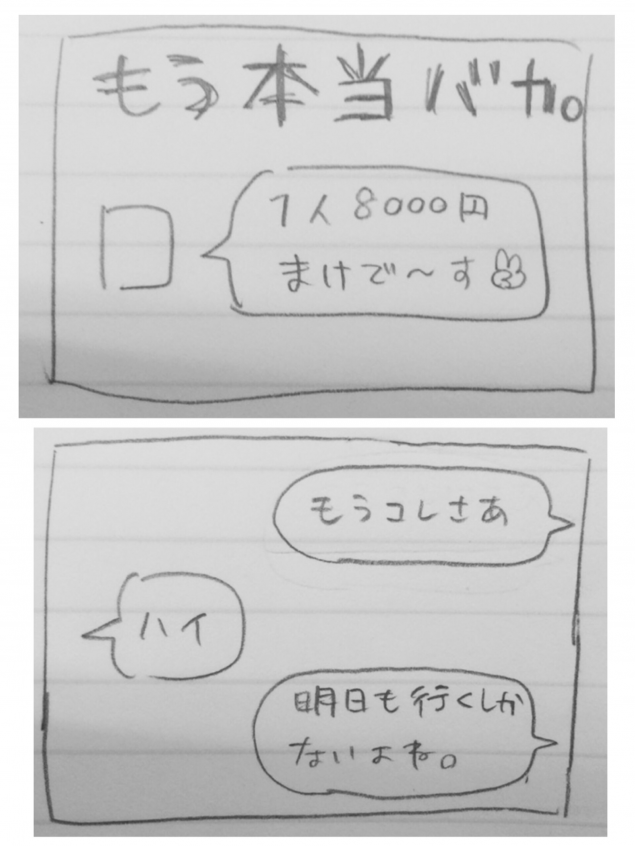 もう本当バカ。
1人8000円
まけで〜す
もうコレさあ
ハイ
明日も行くしか
ないよね。